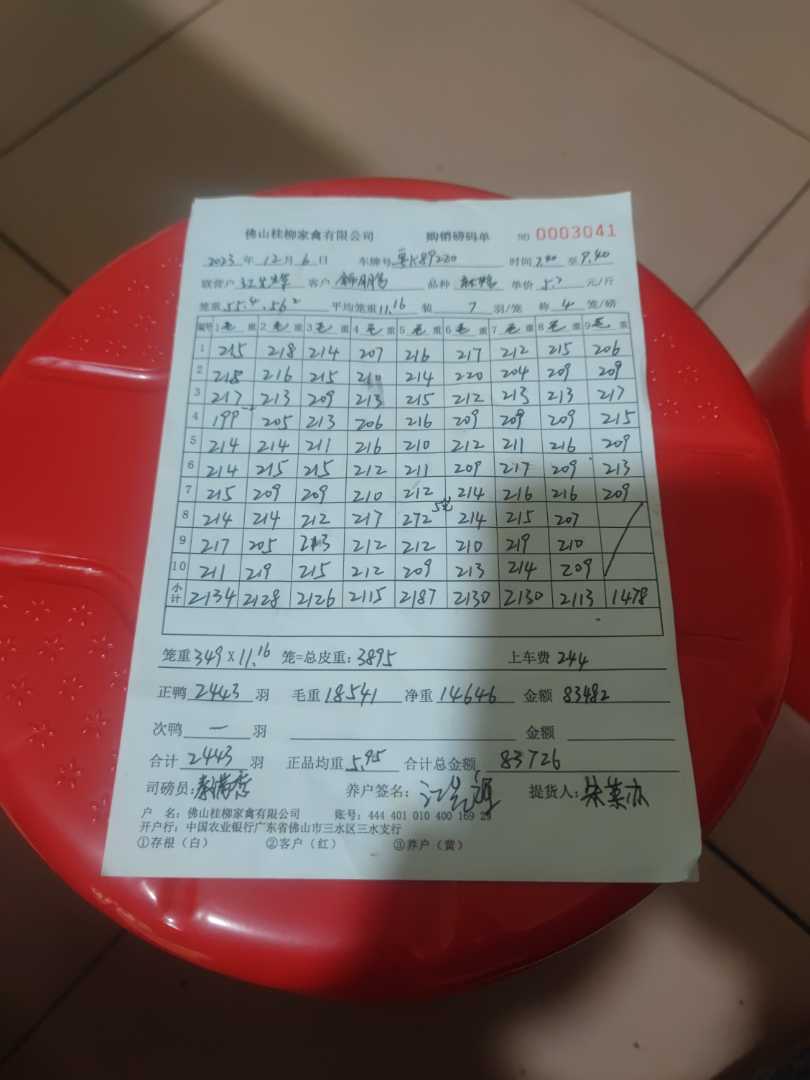 佛山桂柳家禽有限公司 购销磅码单 NO 0003041
2023 年 12 月 6 日 车牌号 粤K89220 时间 7.40 至 9.40
联营户 客户 品种 单价 5.7 元/斤
笼重 55.4.56.2 平均笼重 11.16 装 7 羽/笼 称 4 笼/磅
编号 1 毛 重 2 毛 重 3 毛 重 4 毛 重 5 毛 重 6 毛 重 7 毛 重 8 毛 重 9 毛 重
1 215 218 214 207 216 217 212 215 206
2 218 216 215 210 214 220 204 209 209
3 217 213 209 213 215 212 213 213 217
4 199 -2 205 213 206 216 209 209 209 215
5 214 214 211 216 210 212 211 216 209
6 214 215 215 212 211 209 217 209 213
7 215 209 209 210 212 214 216 216 209
8 214 214 212 217 272 5笼 214 215 207
9 217 205 213 212 212 210 219 210
10 211 219 215 212 209 213 214 209
小计 2134 2128 2126 2115 2187 2130 2130 2113 1478
笼重 349 X 11.16 笼=总皮重: 3895 上车费 244
正鸭 2443 羽 毛重 18541 净重 14646 金额 83482
次鸭 — 羽 金额
合计 2443 羽 正品均重 5.95 合计总金额 83726
司磅员: 养户签名: 提货人:
户 名: 佛山桂柳家禽有限公司 账号: 444 401 010 400 169 29
开户行: 中国农业银行广东省佛山市三水区三水支行
①存根(白) ②客户(红) ③养户(黄)